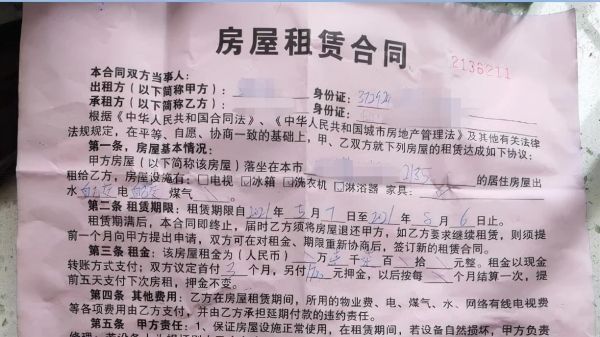 房屋租赁合同
2136211
本合同双方当事人：
出租方（以下简称甲方）： 身份证：
承租方（以下简称乙方）： 身份证：
根据《中华人民共和国合同法》、《中华人民共和国城市房地产管理法》及其他有关法律
法规规定，在平等、自愿、协商一致的基础上，甲、乙双方就下列房屋的租赁达成如下协议：
第一条，房屋基本情况：
甲方房屋（以下简称该房屋）落坐在本市 2135 的居住房屋出
租给乙方，房屋设施有：□电视 冰箱 □洗衣机 淋浴器 家具：
水 电 煤气 。
第二条 租赁期限：租赁期限自2021年5月7日至2021年8月6日止。
租赁期满后，本合同即终止，届时乙方须将房屋退还甲方，如乙方要求继续租赁，则须提
前一个月向甲方提出申请，双方可在对租金、期限重新协商后，签订新的租赁合同。
第三条 租金：该房屋租金为（人民币） 万 千 百 拾 元整。租金以现金
转账方式支付；双方议定首付3个月，另付 元押金，以后按每 个月结算一次，提
前五天支付下次房租，押金不变。
第四条 其他费用：乙方在房屋租赁期间，所用的物业费、电、煤气、水、网络有线电视费
等各项费用由乙方支付，并由乙方承担延期付款的违约责任。
第五条 甲方责任：1、保证房屋设施正常使用，在租赁期间，若设备自然损坏，甲方负责